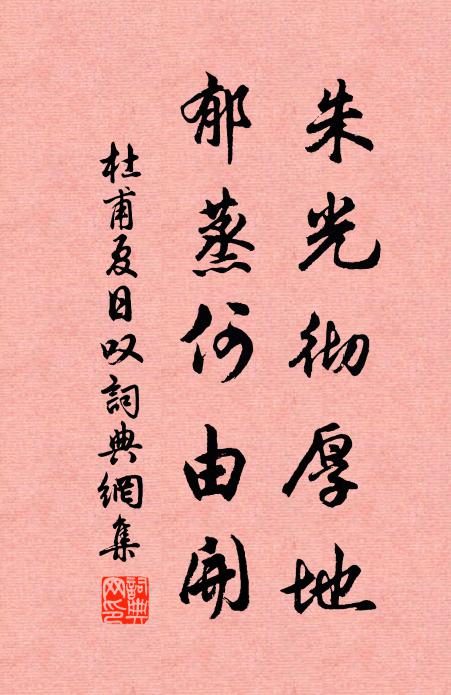 朱光彻厚地
郁蒸何由开
杜甫夏日叹詞典網集
詞典网印